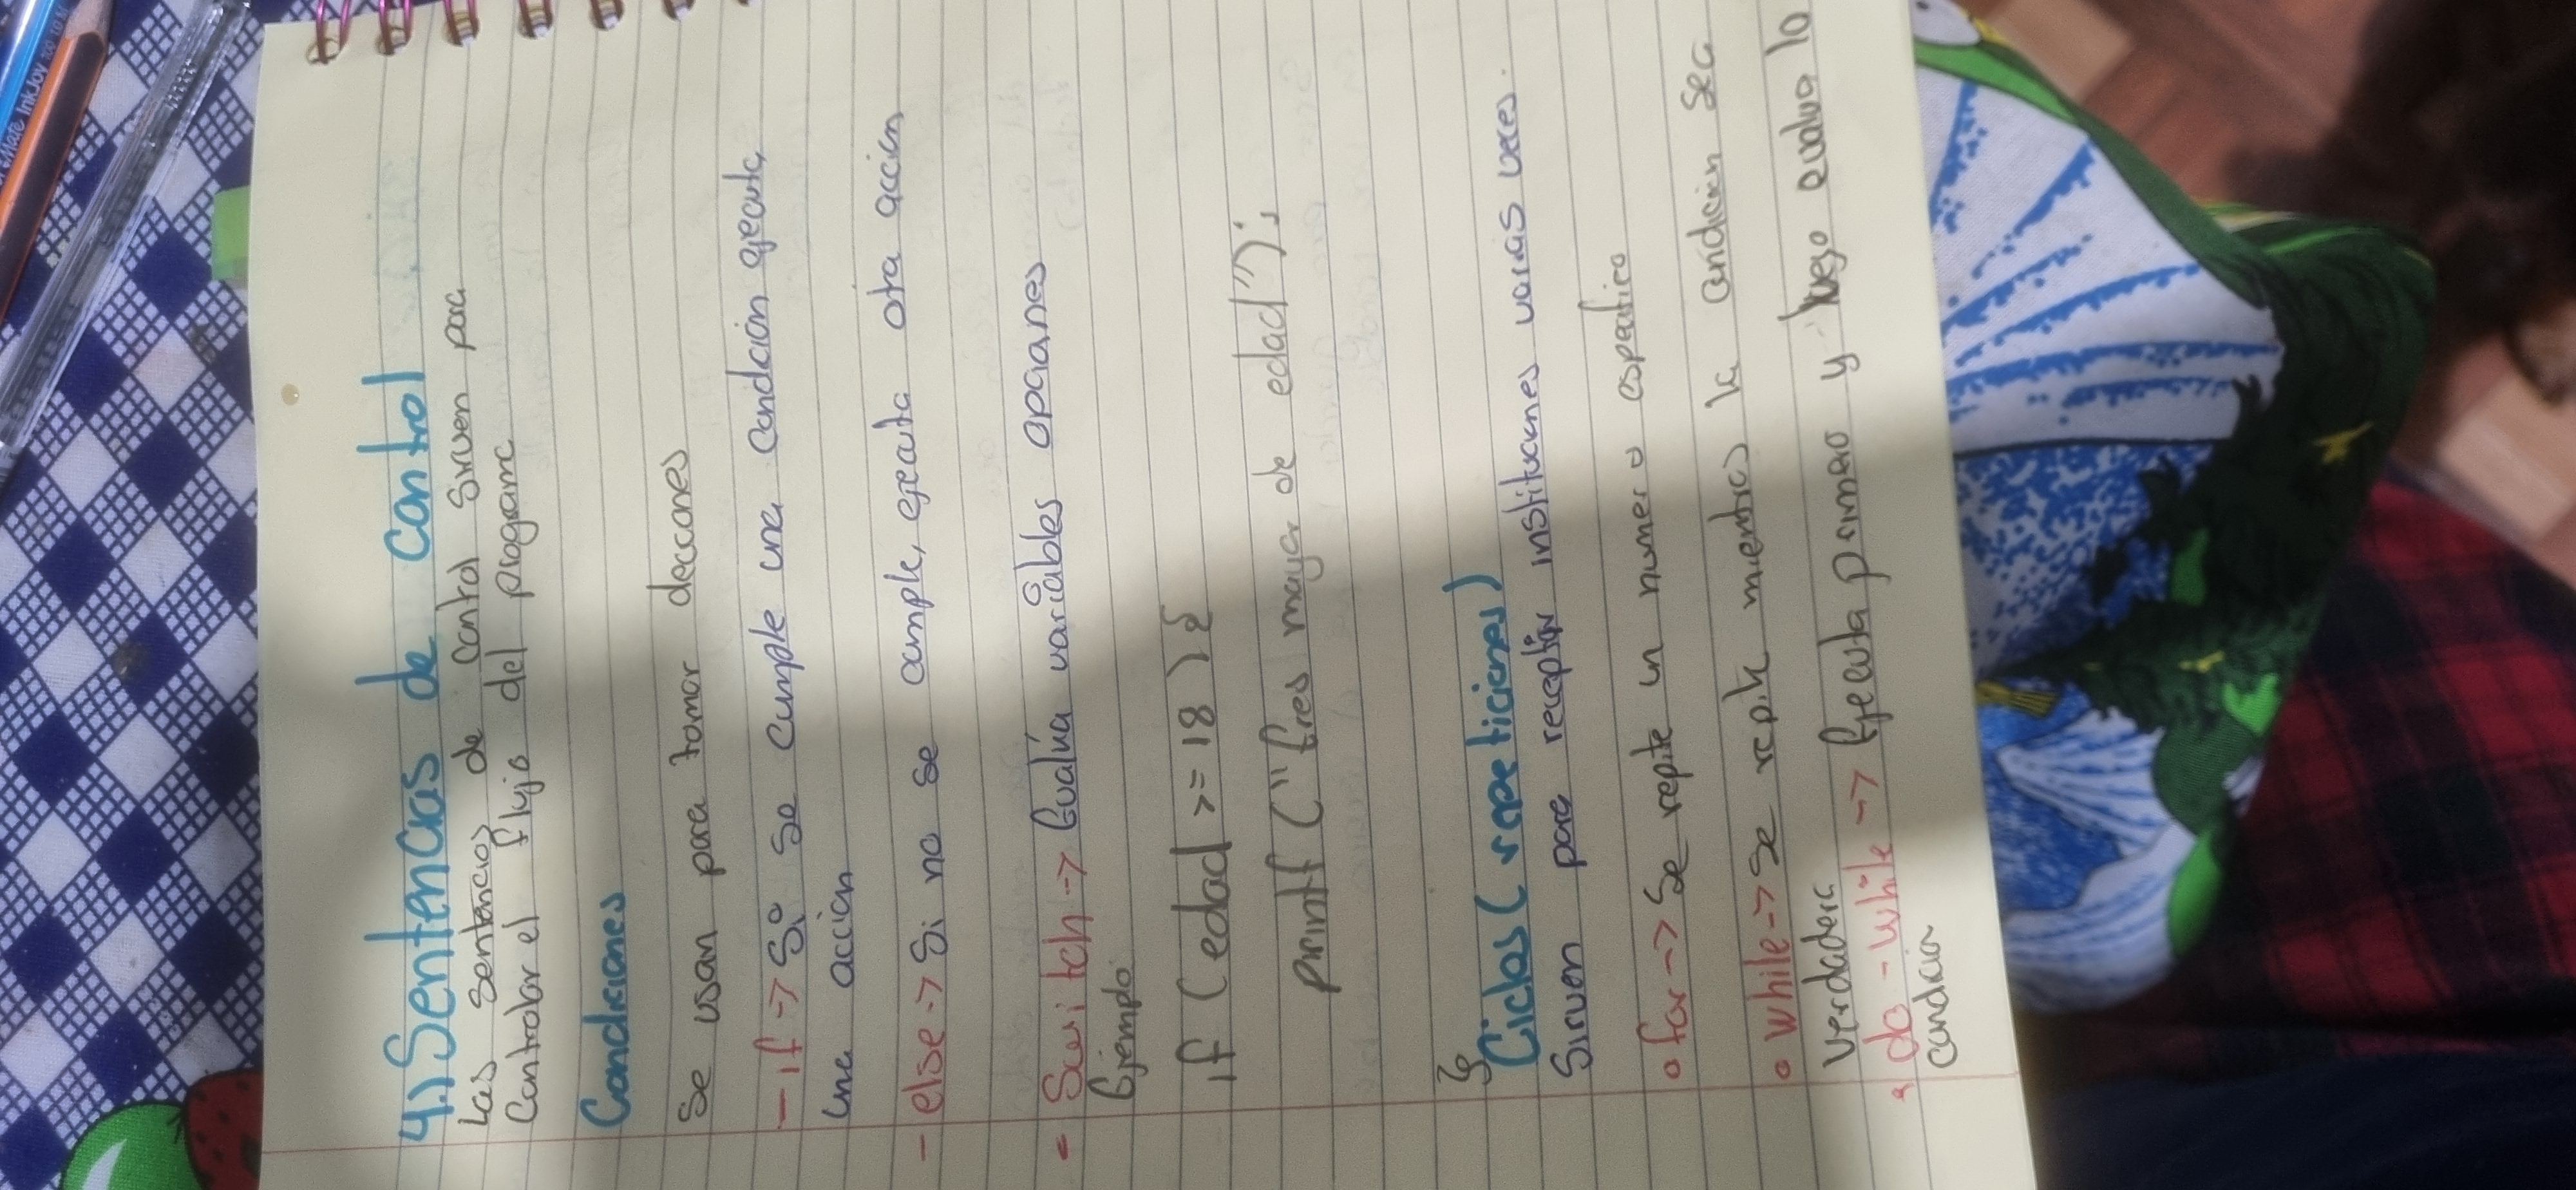 4.) Sentencias de control
Las sentencias de control sirven para
Controlar el flujo del programa
Condiciones
Se usan para tomar decciones
- if -> Si se cumple una condición ejecuta
une acción
- else -> Si no se cumple, ejecuta otra acción
- Switch -> Evalúa variables opciones
Ejemplo
if (edad >= 18) {
printf ("Eres mayor de edad");
}
Ciclos (repeticiones)
Sirven para instituciones varias veces.
• for -> Se repite un numero especifico
• While -> Se repite mientras la condición sea
verdadera
• do - while -> Ejecuta primero y luego evalua la
condición
InkJoy